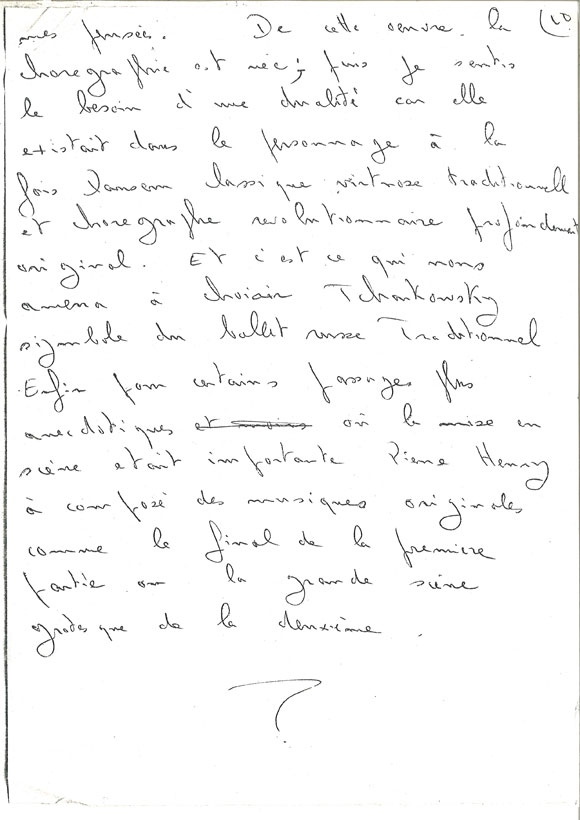 mes pensées. De cette oeuvre la (10
choregraphie est née; puis je sentis
le besoin d'une dualité car elle
existait dans le personnage à la
fois danseur classique virtuose traditionnell
et choregraphe revolutionnaire profondement
original. Et c'est ce qui nous
amena à choisir Tchaikowsky
symbole du ballet russe Traditionnel
Enfin pour certains passages plus
anecdotiques et moins où la mise en
scène etait importante Pierre Henry
à composé des musiques originales
comme le final de la première
partie ou la grande scène
de la deuxième.